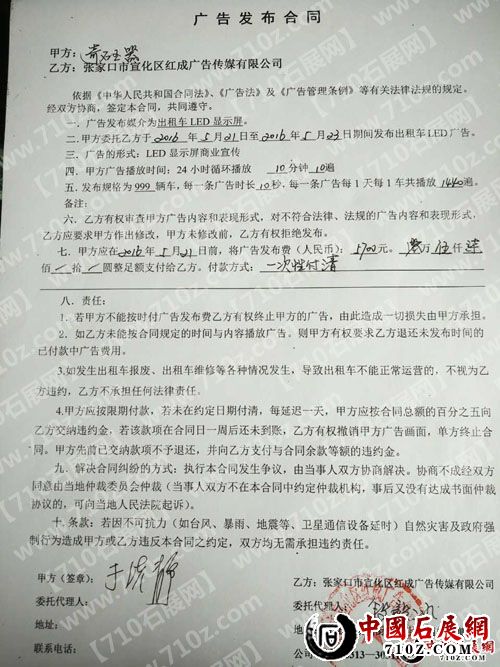 广告发布合同
甲方：
乙方：张家口市宣化区红成广告传媒有限公司
依据《中华人民共和国合同法》、《广告法》及《广告管理条例》等有关法律法规的规定。
经双方协商，签定本合同，共同遵守。
一．广告发布媒介为出租车LED显示屏。
二．甲方委托乙方于2016年5月21日至2016年5月23日期间发布出租车LED广告。
三．广告的形式：LED显示屏商业宣传
四．甲方广告播放时间：24小时循环播放 10分钟10遍
五．发布规格为999辆车，每一条广告时长10秒，每一条广告每1天每1车共播放1440遍。
备注：
六、乙方有权审查甲方广告内容和表现形式，对不符合法律、法规的广告内容和表现形式，
乙方应要求甲方作出修改，甲方未修改前，乙方有权拒绝发布。
七．甲方应在2016年5月21日前，将广告发布费（人民币）：5700元。零万伍仟柒
佰/拾/圆整足额支付给乙方。付款方式：一次性付清
八．责任：
1．若甲方不能按时付广告发布费乙方有权终止甲方的广告，由此造成一切损失由甲方承担。
2．如乙方未能按合同规定的时间与内容播放广告。则甲方有权要求乙方退还未发布时间的
已付款中广告费用。
3.如发生出租车报废、出租车维修等各种情况发生，导致出租车不能正常运营的，不视为乙
方违约，乙方不承担任何法律责任。
4.甲方应按限期付款，若未在约定日期付清，每延迟一天，甲方应按合同总额的百分之五向
乙方交纳违约金，若该款项在合同日一周后还未到账，乙方有权撤销甲方广告画面，单方终止合
同。甲方先前已交纳款项不予退还，并向乙方支付与合同余款等额的违约金。
九．解决合同纠纷的方式：执行本合同发生争议，由当事人双方协商解决。协商不成经双方
同意由当地仲裁委员会仲裁（当事人双方不在本合同中约定仲裁机构，事后又没有达成书面仲裁
协议的，可向当地人民法院起诉）。
十．条款：若因不可抗力（如台风、暴雨、地震等、卫星通信设备延时）自然灾害及政府强
制行为造成甲方或乙方违反本合同之约定，双方均无需承担违约责任。
甲方（签章）： 乙方：张家口市宣化区红成广告传媒有限公司
委托代理人： 委托代理人：
地址： 地址：
联系电话：
中國石展網
www.710z.com
【710z石展网】